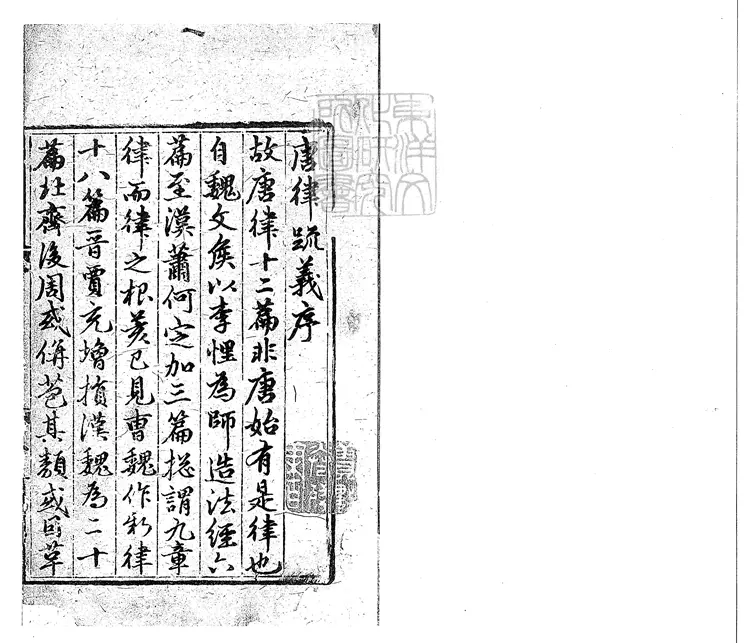 唐律疏義序
故唐律十二篇非唐始有是律也
自魏文侯以李悝為師造法經六
篇至漢蕭何定加三篇捴謂九章
律而律之根荄已見曹魏作新律
十八篇晉賈充增損漢魏為二十
篇北齊後周或併苞其類或因革
東洋文
化研究
所圖書